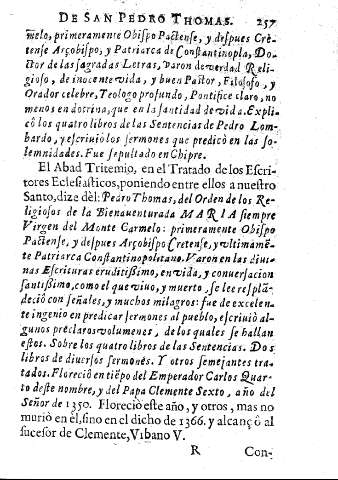 DE SAN PEDRO THOMAS. 257
melo, primeramente Obispo Pactense, y despues Cre-
tense Arçobispo, y Patriarca de Constantinopla, Do-
ctor de las sagradas Letras, varon de verdad Reli-
gioso, de inocente vida, y buen Pastor, Filosofo, y
Orador celebre, Teologo profundo, Pontifice claro, no
menos en doctrina, que en la santidad de vida. Expli-
cò los quatro libros de las Sentencias de Pedro Lom-
bardo, y escriuiò los sermones que predicò en las so-
lemnidades. Fue sepultado en Chipre.
El Abad Tritemio, en el Tratado de los Escri-
tores Eclesiasticos, poniendo entre ellos a nuestro
Santo, dize dèl: Pedro Thomas, del Orden de los Re-
ligiosos de la Bienauenturada MARIA siempre
Virgen del Monte Carmelo: primeramente Obispo
Pactense, y despues Arçobispo Cretense, y vltimamẽ-
te Patriarca Constantinopolitano. Varon en las diui-
nas Escrituras eruditissimo, en vida, y conuersacion
santissimo, como el que viuo, y muerto, se lee respla-
deciò con señales, y muchos milagros: fue de excelen-
te ingenio en predicar sermones al pueblo, escriuiò al-
gunos preclaros volumenes, de los quales se hallan
estos. Sobre los quatro libros de las Sentencias. Dos
libros de diuersos sermones. Y otros semejantes tra-
tados. Floreciò en tiẽpo del Emperador Carlos Quar-
to deste nombre, y del Papa Clemente Sexto, año del
Señor de 1350. Floreciò este año, y otros, mas no
murio en èl, sino en el dicho de 1366. y alcançò al
sucesor de Clemente, Vrbano V.
R Con-